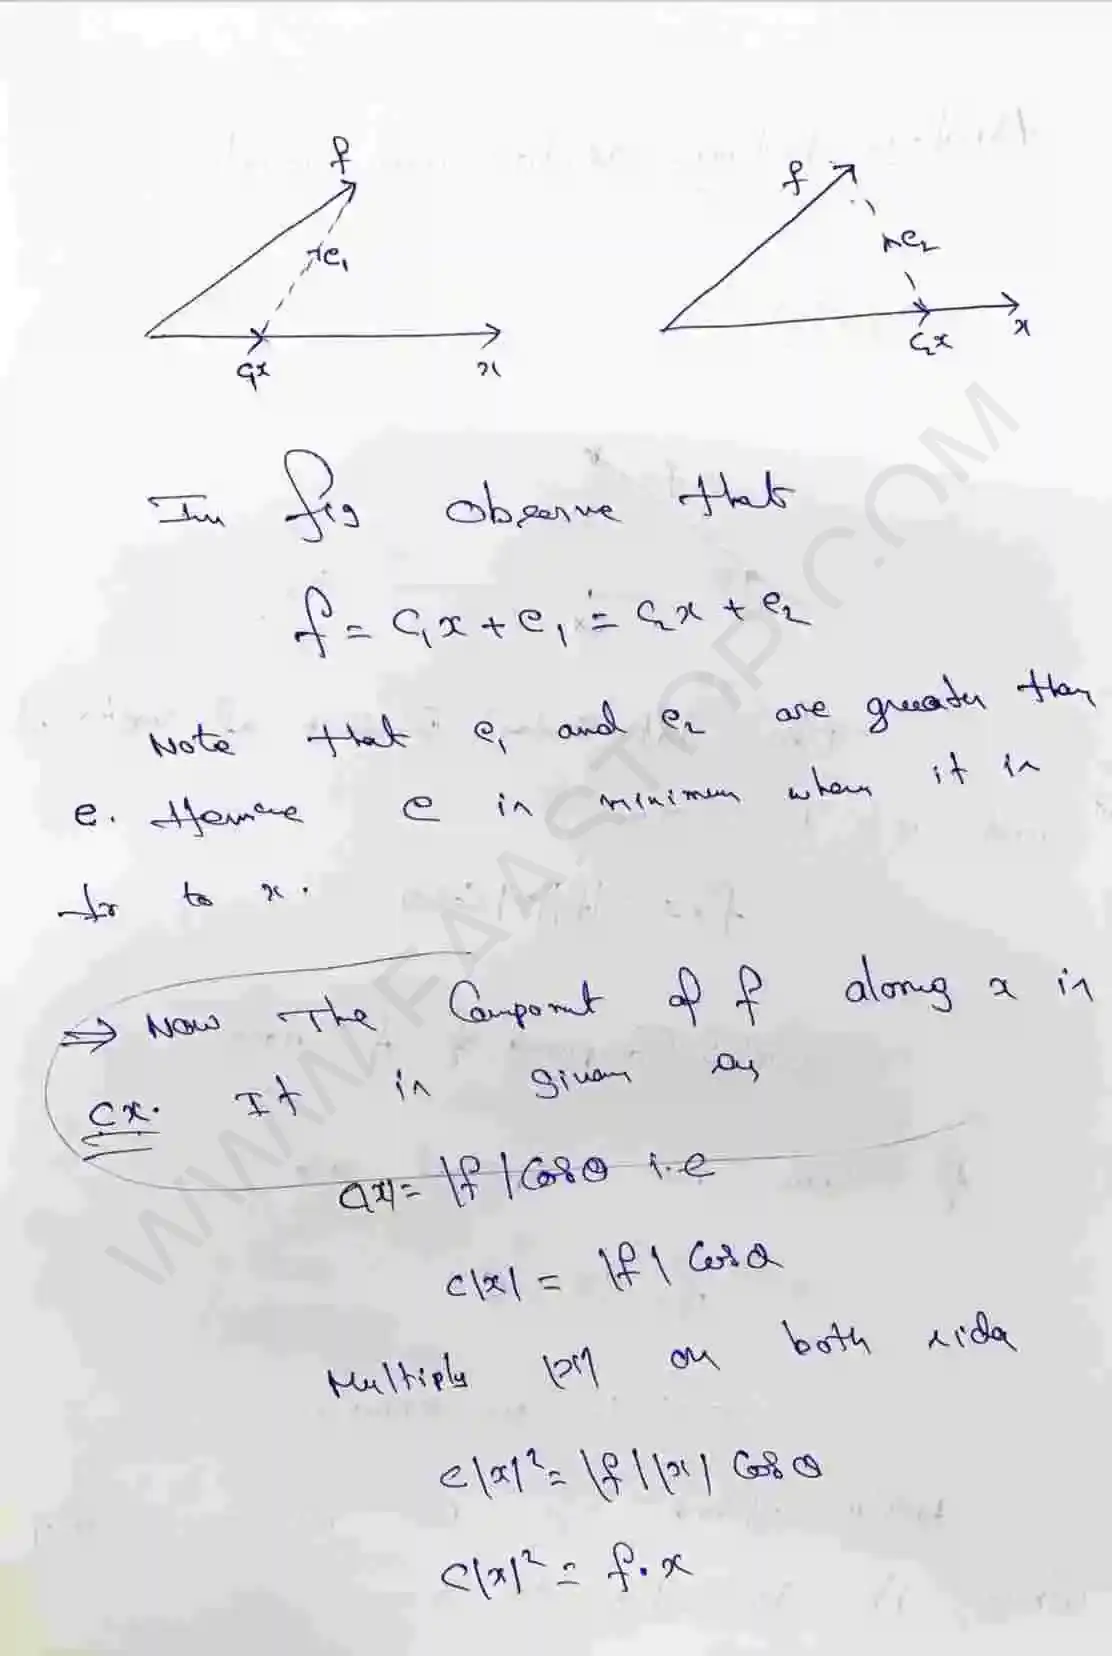 f
e₁
c₁x
x
f
e₂
c₂x
x
In fig observe that
f = c₁x + e₁ = c₂x + e₂
Note that e₁ and e₂ are greater than
e. Hence e is minimum when it is
⊥r to x.
→ Now The Component of f along x is
cx. It is given as
c|x| = |f| Cosθ i.e
c|x| = |f| Cosθ
Multiply |x| on both side
c|x|² = |f||x| Cosθ
c|x|² = f.x
WWW.FAASTOP.COM